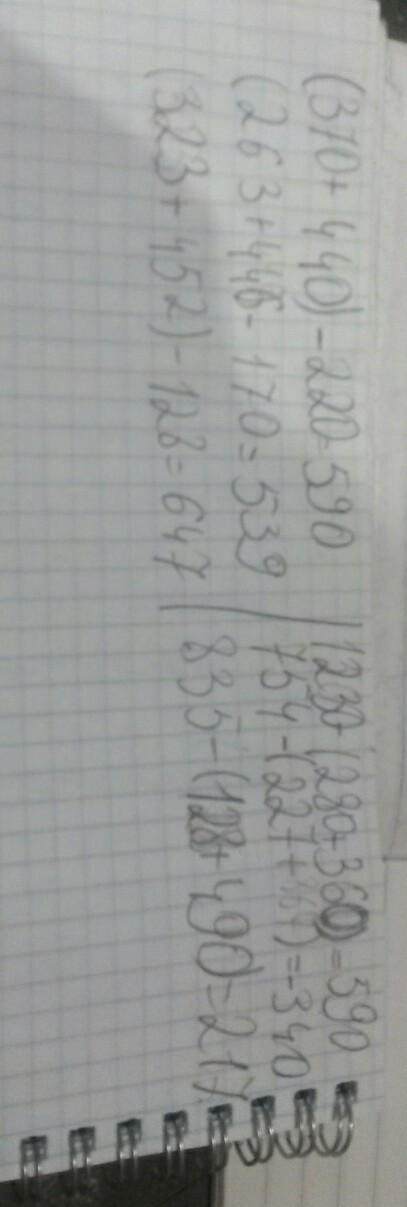 (370+440)-220=590 | 1230-(280+360)=590
(263+446-170=539 | 754-(227+)=340
(323+452)-128=647 | 835-(128+490)=217